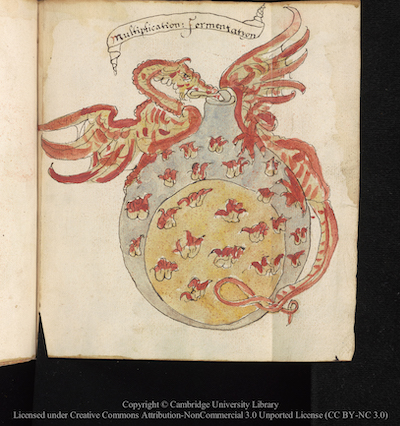 Multiplication: Fermentatzon
Copyright © Cambridge University Library
Licensed under Creative Commons Attribution-NonCommercial 3.0 Unported License (CC BY-NC 3.0)